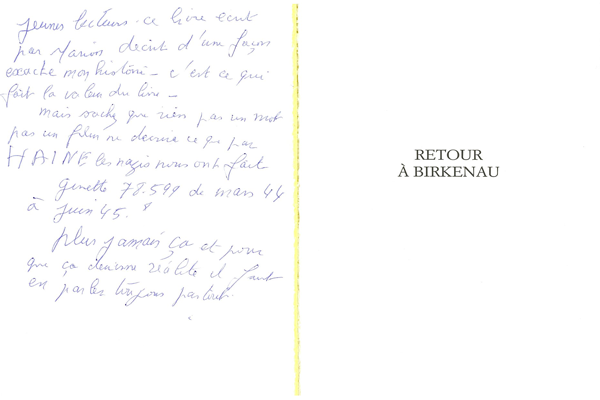 jeunes lecteurs. ce livre ecrit
par Marion decrit d'une façon
exacte mon histoire - c'est ce qui
fait la valeur du livre -
mais sachez que rien pas un mot
pas un film ne decrira ce que par
HAINE les nazis nous ont fait
Ginette 78.599 de mars 44
à juin 45.
plus jamais ça et pour
que ça devienne réalité il faut
en parler toujours partout.
RETOUR
À BIRKENAU